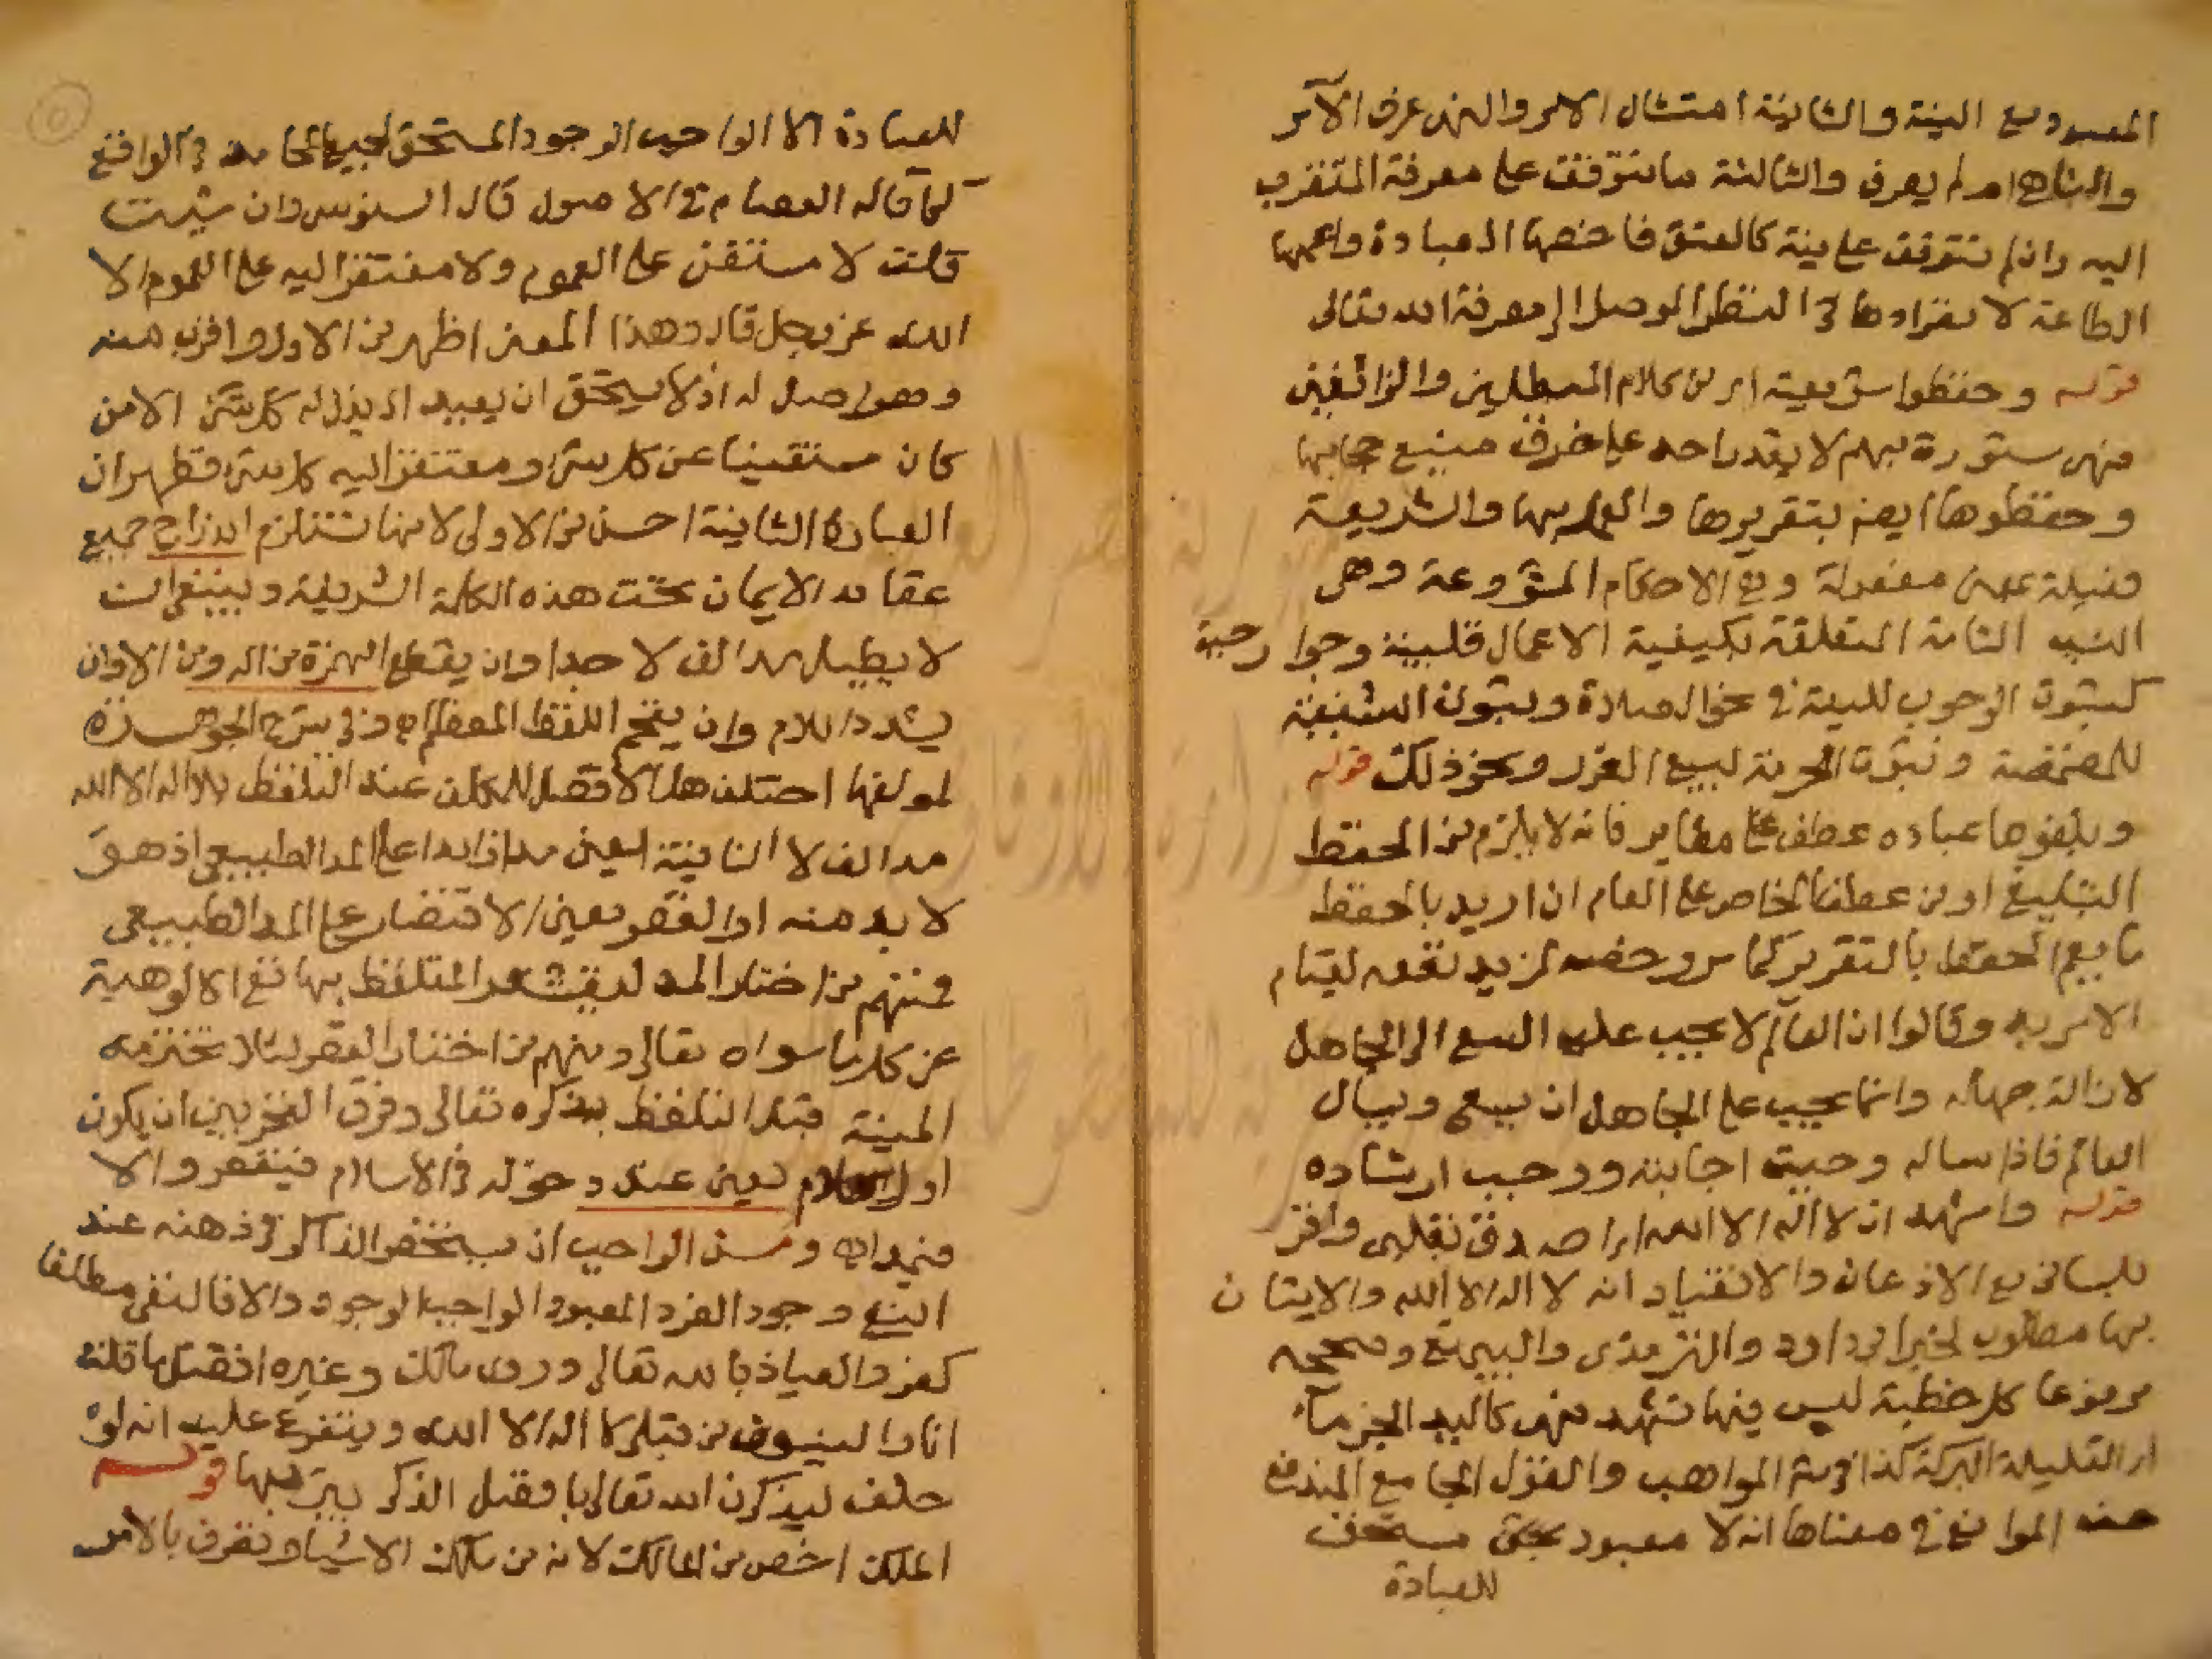 المعبود مع النية والثانية امتثال الامر والنهى عرف الآمر
والناهى ام لم يعرف والثالثة ما يتوقف على معرفة المتقرب
اليه وان لم تتوقف على نية كالعتق فاخصها العبادة واعمها
الطاعة لانفرادها فى النظر الموصل الى معرفة الله تعالى
قوله وحفظوا شريعته اى من كلام المبطلين والزائغين
فهى مستورة بهم لا يقدر احد على خرق منيع حجابها
وحفظوها ايضا بتقريرها والعمل بها والشريعة
فعيلة بمعنى مفعولة وهى الاحكام المشروعة وهى
النسب التامة المتعلقة بكيفية الاعمال قلبية وجوارحية
كثبوت الوجوب للنية فى نحو الصلاة وثبوت السنية
للمضمضة وثبوت الحرمة لبيع الغرر ونحو ذلك قوله
وبلغوها عباده عطف على مغاير فانه لا يلزم من الحفظ
التبليغ او من عطف الخاص على العام ان اريد بالحفظ
ما يعم الحفظ بالتقرير كما مر وخصه لمزيد نفعه لقيام
الامر به وقالوا ان العالم لا يجب عليه السعى الى الجاهل
لازالة جهله وانما يجب على الجاهل ان يسعى ويسال
العالم فاذا ساله وجبت اجابته ووجب ارشاده
قوله واشهد ان لا اله الا الله اى اصدق بقلبى واقر
بلسانى مع الاذعان والانقياد انه لا اله الا الله والاتيان
بها مطلوب لخبر ابى داود والترمذى والبيهقى وصححه
مرفوعا كل خطبة ليس فيها تشهد فهى كاليد الجزماء
اى القليلة البركة كذا فى شرح المواهب والقول الجامع المندفع
عنه الموانع فى معناها انه لا معبود بحق مستحق
للعبادة
للعبادة الا الواجب الوجود المستحق لجميع المحامد فى الواقع
كما قاله العصام فى الاصول قال السنوسى وان شيت
قلت لا مستغنى على العموم ولا مفتقرا اليه على العموم الا
الله عز وجل قال وهذا المعنى اظهر من الاول واقرب منه
وهو اصل له اذ لا يستحق ان يعبد اى يذل له كل شئ الا من
كان مستغنيا عن كل شئ ومفتقرا اليه كل شئ فظهر ان
العبارة الثانية احسن من الاولى لانها تستلزم اندراج جميع
عقايد الايمان تحت هذه الكلمة الشريفة وينبغى ان
لا يطيل مد الف لا جدا وان يقطع الهمزة من اله ومن الا وان
يشدد اللام وان يفخم اللفظ المعظم وفى شرح الجوهرة
لمولفها اختلف هل الافضل للمكلف عند التلفظ بلا اله الا الله
مد الف لا النافية يعنى مدا زايدا على المد الطبيعى اذ هو
لا بد منه او القصر يعنى الاقتصار على المد الطبيعى
فمنهم من اختار المد ليستشعر المتلفظ بها نفى الالوهية
عن كل ما سواه تعالى ومنهم من اختار القصر لئلا تخترمه
المنية قبل التلفظ بذكره تعالى وفرق الفخر بين ان يكون
اول كلام يعنى عند دخوله فى الاسلام فيقصر والا
فيمد اه ومن الواجب ان يستحضر الذاكر فى ذهنه عند
النفى وجود الفرد المعبود الواجب الوجود والا فالنفى مطلقا
كفر والعياذ بالله تعالى وروى مالك وغيره افضل ما قلته
انا والنبيون من قبلى لا اله الا الله ويتفرع عليه انه لو
حلف ليذكرن الله تعالى بافضل الذكر يبر بها قوله
الملك اخص من المالك لانه من ملك الاشياء وتصرف بالامر